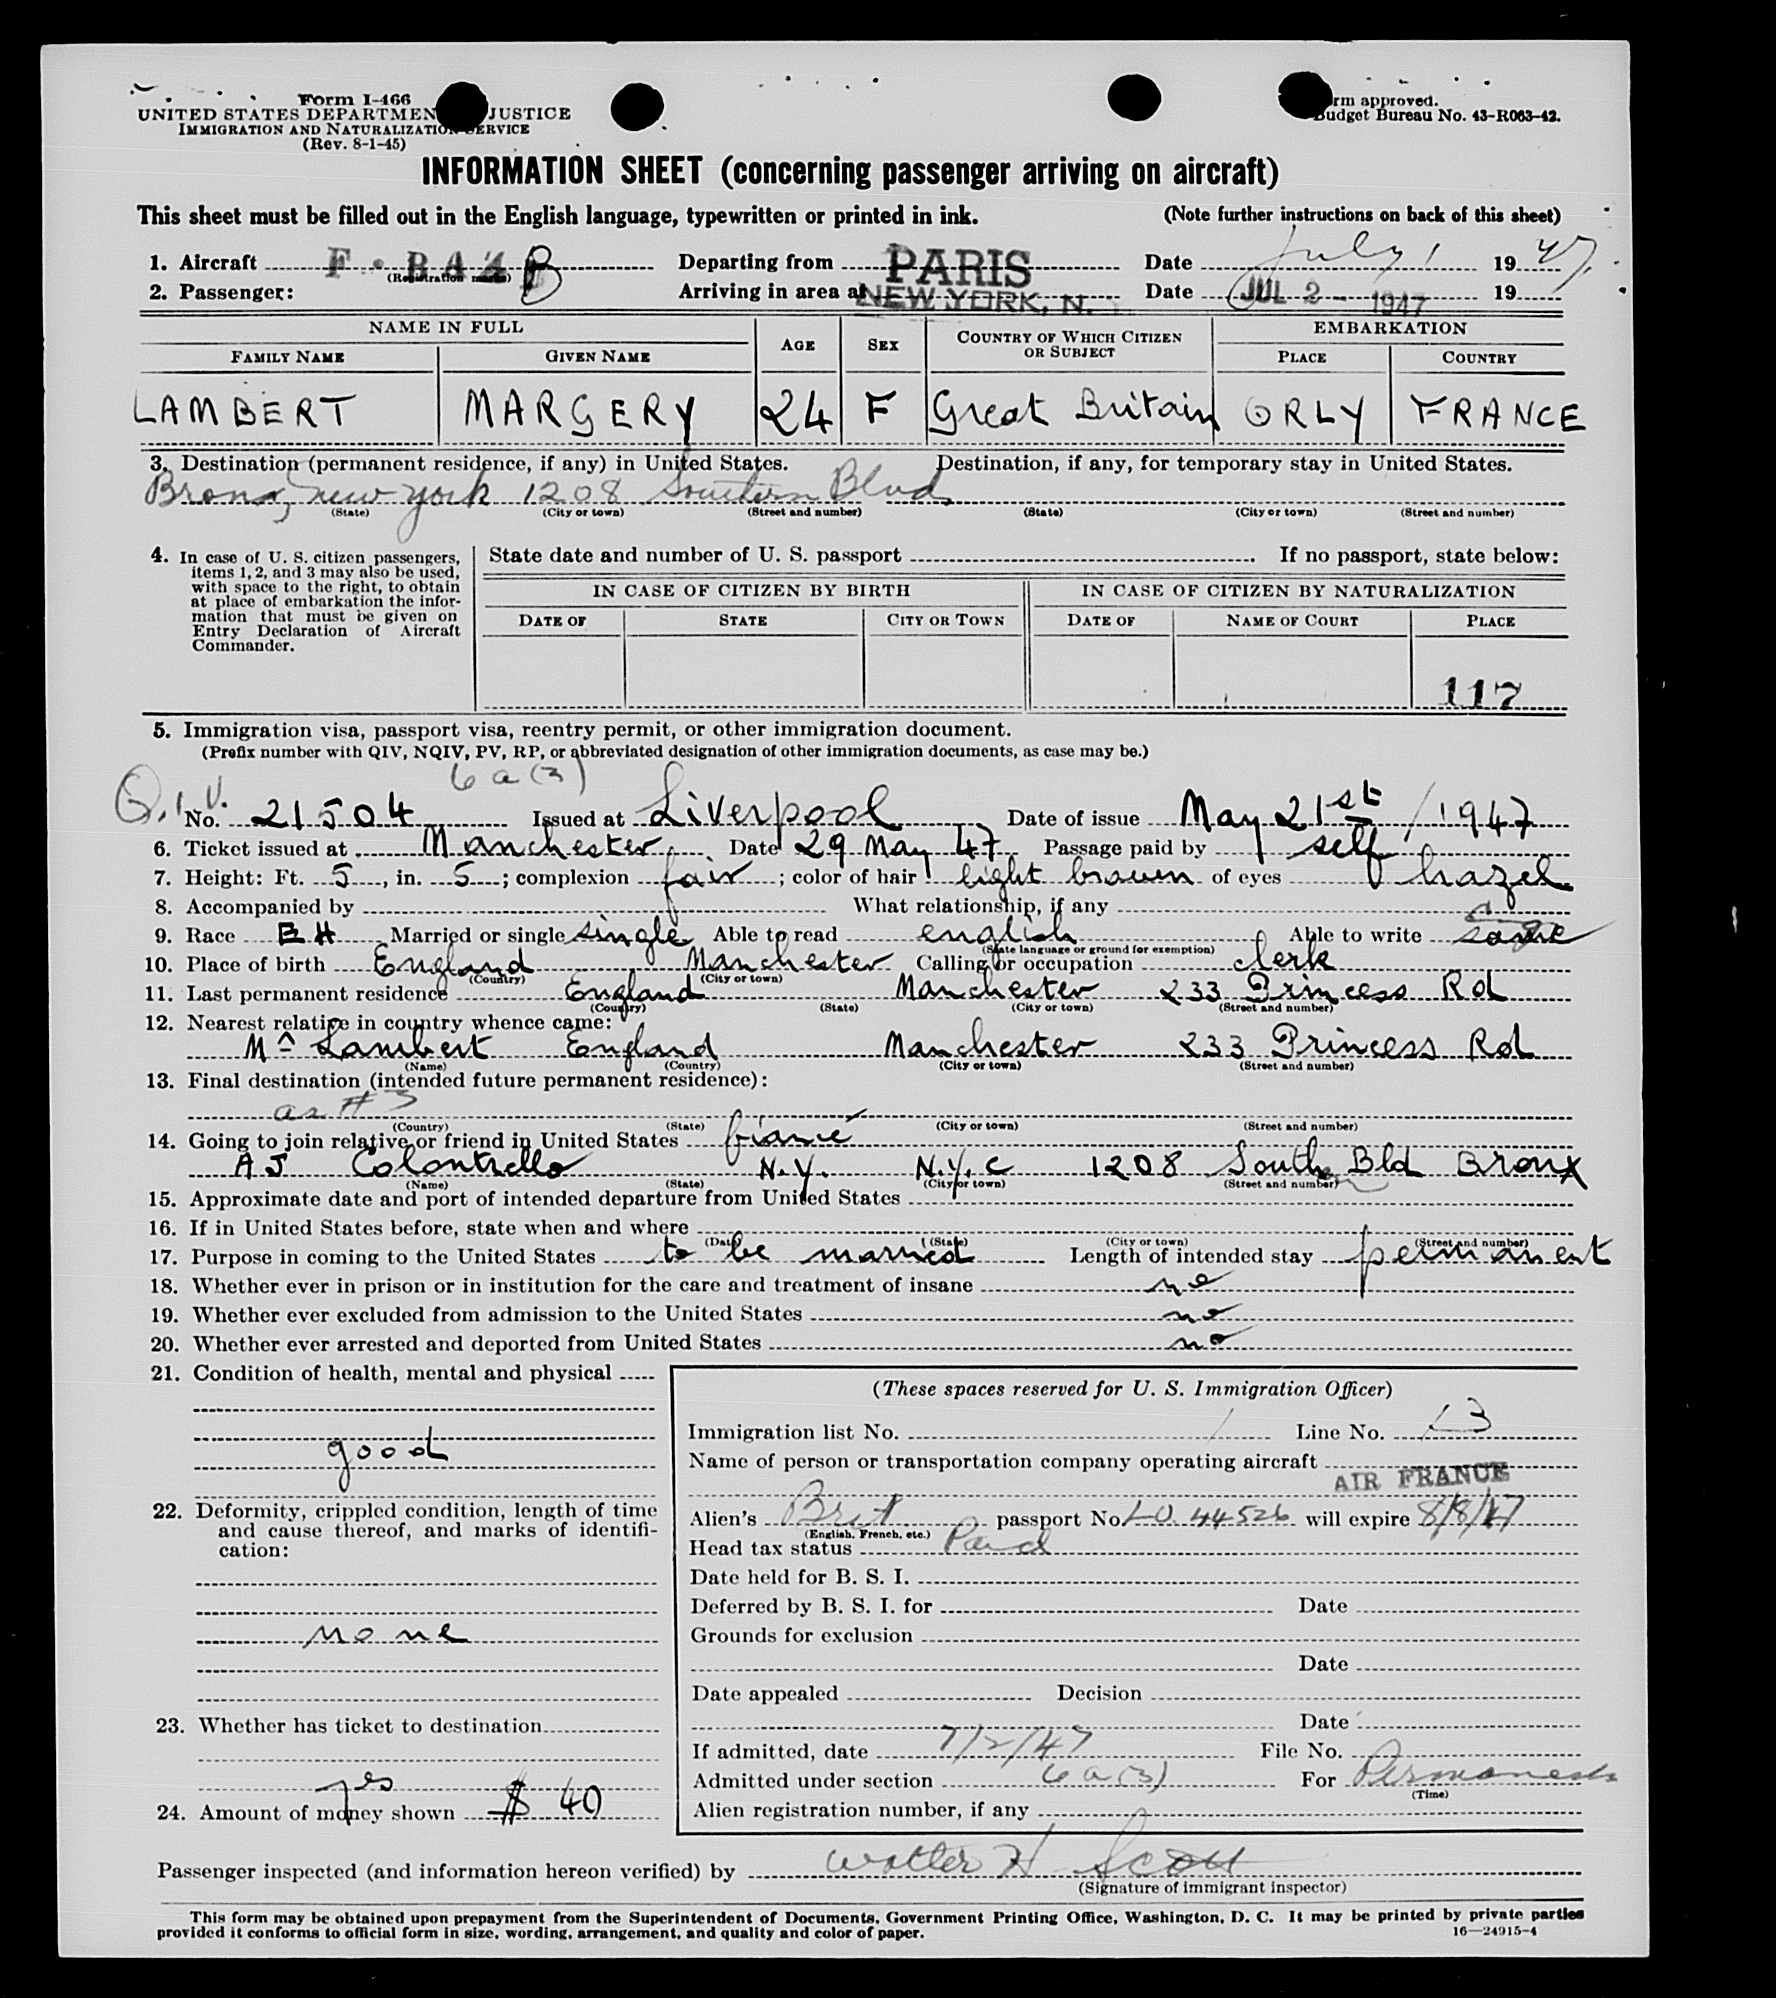 Form I-466
UNITED STATES DEPARTMENT JUSTICE
IMMIGRATION AND NATURALIZATION SERVICE
(Rev. 8-1-45)
rm approved.
Budget Bureau No. 43-R063-42.
INFORMATION SHEET (concerning passenger arriving on aircraft)
This sheet must be filled out in the English language, typewritten or printed in ink. (Note further instructions on back of this sheet)
1. Aircraft F-BAZB Departing from PARIS Date July 1 1947
(Registration marks)
2. Passenger: Arriving in area at NEW YORK, N. Date JUL 2 - 1947 19
NAME IN FULL AGE SEX COUNTRY OF WHICH CITIZEN OR SUBJECT EMBARKATION
FAMILY NAME GIVEN NAME PLACE COUNTRY
LAMBERT MARGERY 24 F Great Britain ORLY FRANCE
3. Destination (permanent residence, if any) in United States. Destination, if any, for temporary stay in United States.
Bronx, New York 1208 Southern Blvd
(State) (City or town) (Street and number) (State) (City or town) (Street and number)
4. In case of U. S. citizen passengers, items 1, 2, and 3 may also be used, with space to the right, to obtain at place of embarkation the information that must be given on Entry Declaration of Aircraft Commander.
State date and number of U. S. passport If no passport, state below:
IN CASE OF CITIZEN BY BIRTH IN CASE OF CITIZEN BY NATURALIZATION
DATE OF STATE CITY OR TOWN DATE OF NAME OF COURT PLACE
117
5. Immigration visa, passport visa, reentry permit, or other immigration document.
(Prefix number with QIV, NQIV, PV, RP, or abbreviated designation of other immigration documents, as case may be.)
6 a (3)
Q.I.V. No. 21504 Issued at Liverpool Date of issue May 21st / 1947
6. Ticket issued at Manchester Date 29 May 47 Passage paid by self
7. Height: Ft. 5, in. 5; complexion fair; color of hair light brown of eyes hazel
8. Accompanied by What relationship, if any
9. Race Married or single single Able to read english Able to write same
(State language or ground for exemption)
10. Place of birth England Manchester Calling or occupation clerk
(Country) (City or town)
11. Last permanent residence England Manchester 233 Princess Rd
(Country) (State) (City or town) (Street and number)
12. Nearest relative in country whence came:
Mr Lambert England Manchester 233 Princess Rd
(Name) (Country) (City or town) (Street and number)
13. Final destination (intended future permanent residence):
as # 3
(Country) (State) (City or town) (Street and number)
14. Going to join relative or friend in United States fiancé
A J Colontrello N.Y. N.Y.C 1208 South Bld Bronx
(Name) (State) (City or town) (Street and number)
15. Approximate date and port of intended departure from United States
16. If in United States before, state when and where
(Date) (State) (City or town) (Street and number)
17. Purpose in coming to the United States to be married Length of intended stay permanent
18. Whether ever in prison or in institution for the care and treatment of insane no
19. Whether ever excluded from admission to the United States no
20. Whether ever arrested and deported from United States no
21. Condition of health, mental and physical
good
22. Deformity, crippled condition, length of time and cause thereof, and marks of identification:
none
23. Whether has ticket to destination
yes
24. Amount of money shown $ 40
(These spaces reserved for U. S. Immigration Officer)
Immigration list No. 1 Line No. 13
Name of person or transportation company operating aircraft
AIR FRANCE
Alien's Brit passport No. LO 44526 will expire 8/8/47
(English, French, etc.)
Head tax status Paid
Date held for B. S. I.
Deferred by B. S. I. for Date
Grounds for exclusion
Date
Date appealed Decision
Date
If admitted, date 7/2/47 File No.
Admitted under section 6 a (3) For Permanent
(Time)
Alien registration number, if any
Passenger inspected (and information hereon verified) by Walter H Scott
(Signature of immigrant inspector)
This form may be obtained upon prepayment from the Superintendent of Documents, Government Printing Office, Washington, D. C. It may be printed by private parties
provided it conforms to official form in size, wording, arrangement, and quality and color of paper. 16—24915-4